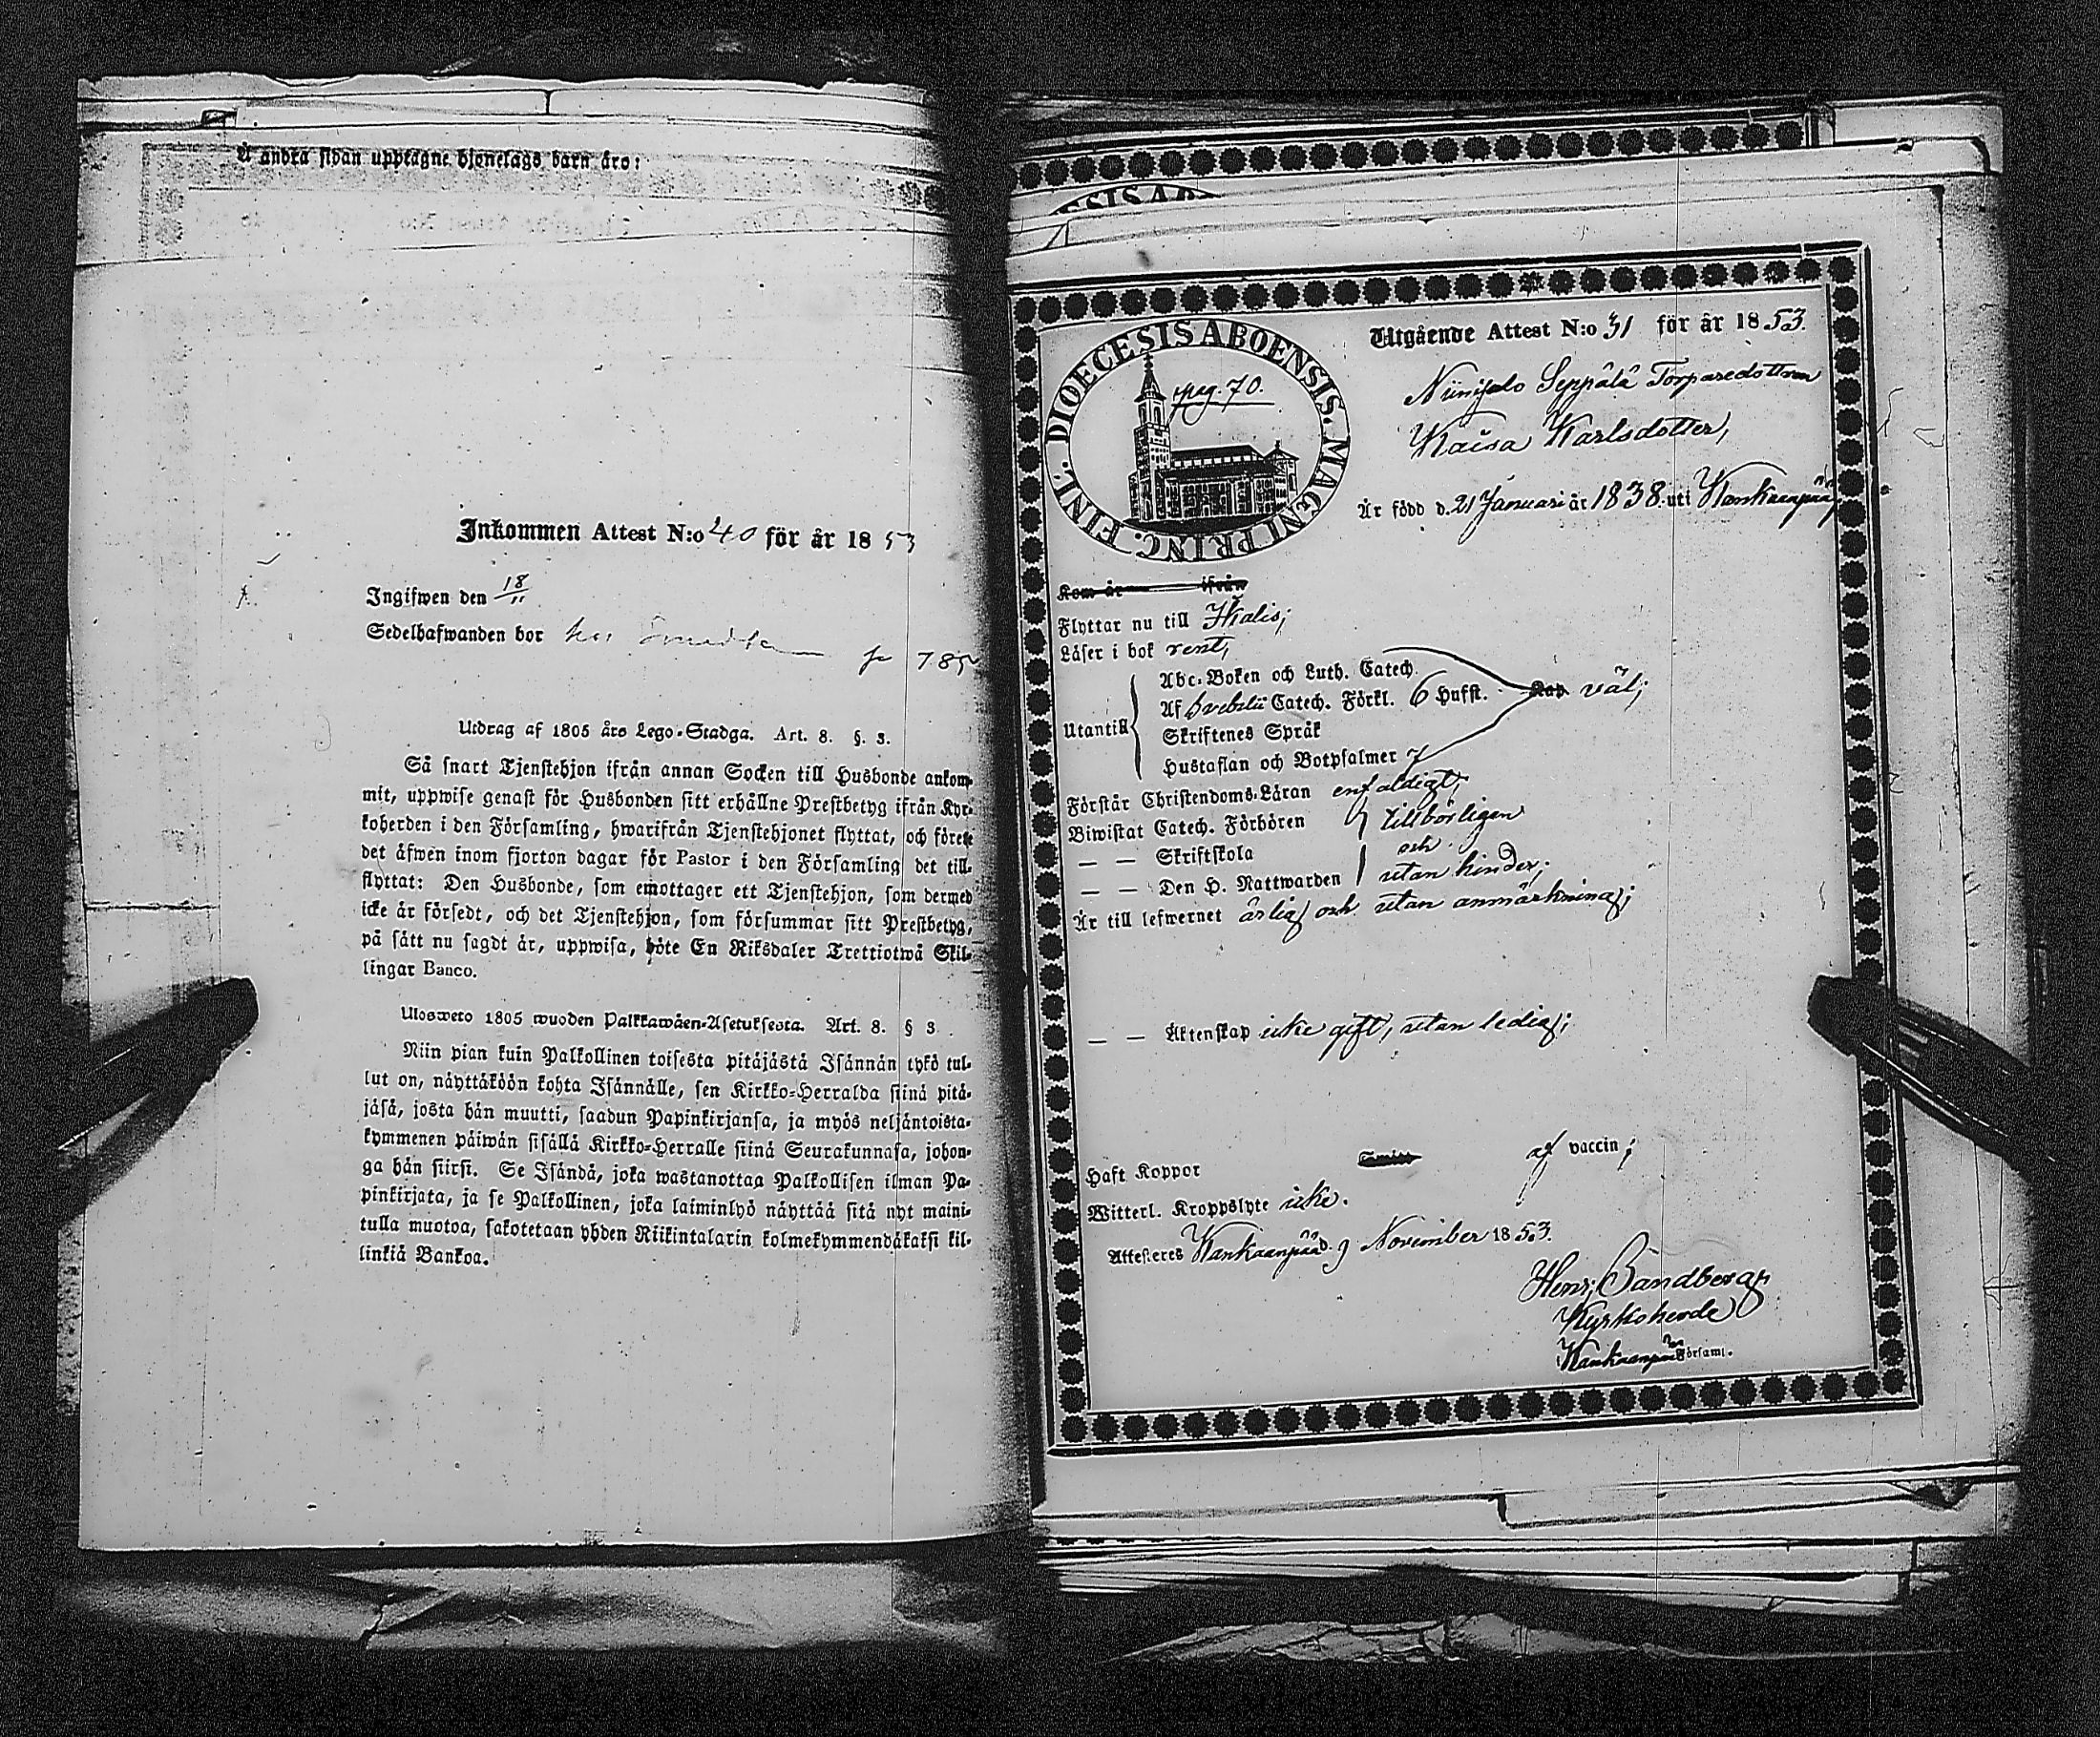 Å andra sidan upptagne hjonelags barn äro:
Inkommen Attest N:o 40 för år 1853
Ingifwen den 18/11
Sedelhafwanden bor hos
Utdrag af 1805 års Lego-Stadga. Art. 8. §. 3.
Så snart Tjenstehjon ifrån annan Socken till Husbonde ankom-
mit, uppwise genast för Husbonden sitt erhållne Prestbetyg ifrån Kyr-
koherden i den Församling, hwarifrån Tjenstehjonet flyttat, och förete
det äfwen inom fjorton dagar för Pastor i den Församling det till-
flyttat: Den Husbonde, som emottager ett Tjenstehjon, som dermed
icke är försedt, och det Tjenstehjon, som försummar sitt Prestbetyg,
på sätt nu sagdt är, uppwisa, böte En Riksdaler Trettiotwå Skil-
lingar Banco.
Ulosweto 1805 wuoden Palkkawäen-Asetuksesta. Art. 8. § 3.
Niin pian kuin Palkollinen toisesta pitäjästä Isännän tykö tul-
lut on, näyttäköön kohta Isännälle, sen Kirkko-Herralda siinä pitä-
jäsä, josta hän muutti, saadun Papinkirjansa, ja myös neljäntoista-
kymmenen päiwän sisällä Kirkko-Herralle siinä Seurakunnasa, johon-
ga hän siirsi. Se Isändä, joka wastanottaa Palkollisen ilman Pa-
pinkirjata, ja se Palkollinen, joka laiminlyö näyttää sitä nyt maini-
tulla muotoa, sakotetaan yhden Riikintalarin kolmekymmendäkaksi kil-
linkiä Bankoa.
DIOECESIS ABOENSIS. MAGNI PRINC. FINL.
pag. 70.
Utgående Attest N:o 31 för år 1853.
Niinisalo Seppälä Torparedottren
Kaisa Karlsdotter,
Är född d. 21 Januari år 1838. uti Kankaanpää,
Kom år ifrån
Flyttar nu till Ikalis;
Läser i bok rent,
Utantill
Abc-Boken och Luth. Catech.
Af Svebelii Catech. Förkl. 6 Hufst. Kap väl;
Skriftenes Språk
Hustaflan och Botpsalmer 7
Förstår Christendoms-Läran enfaldigt;
Biwistat Catech. Förhören tillbörligen
— — Skriftskola och
— — Den H. Nattwarden utan hinder;
Är till lefwernet ärlig och utan anmärkning;
— — Äktenskap icke gift, utan ledig;
Haft Koppor af vaccin;
Witterl. Kroppslyte icke.
Attesteres Kankaanpää d. 9 November 1853.
Henr. Sandberg,
Kyrkoherde
Kankaanpää Församl.